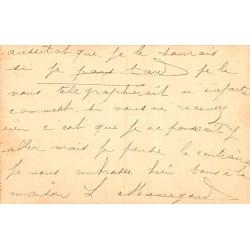 aussitot que je le saurais
si je pars tard je le
vous télégrapherait n'importe
comment. Si vous ne recevez
rien c'est que je ne pourrait y
aller mais je pense le contraire
Je vous embrasse bien tous à la
maison L.